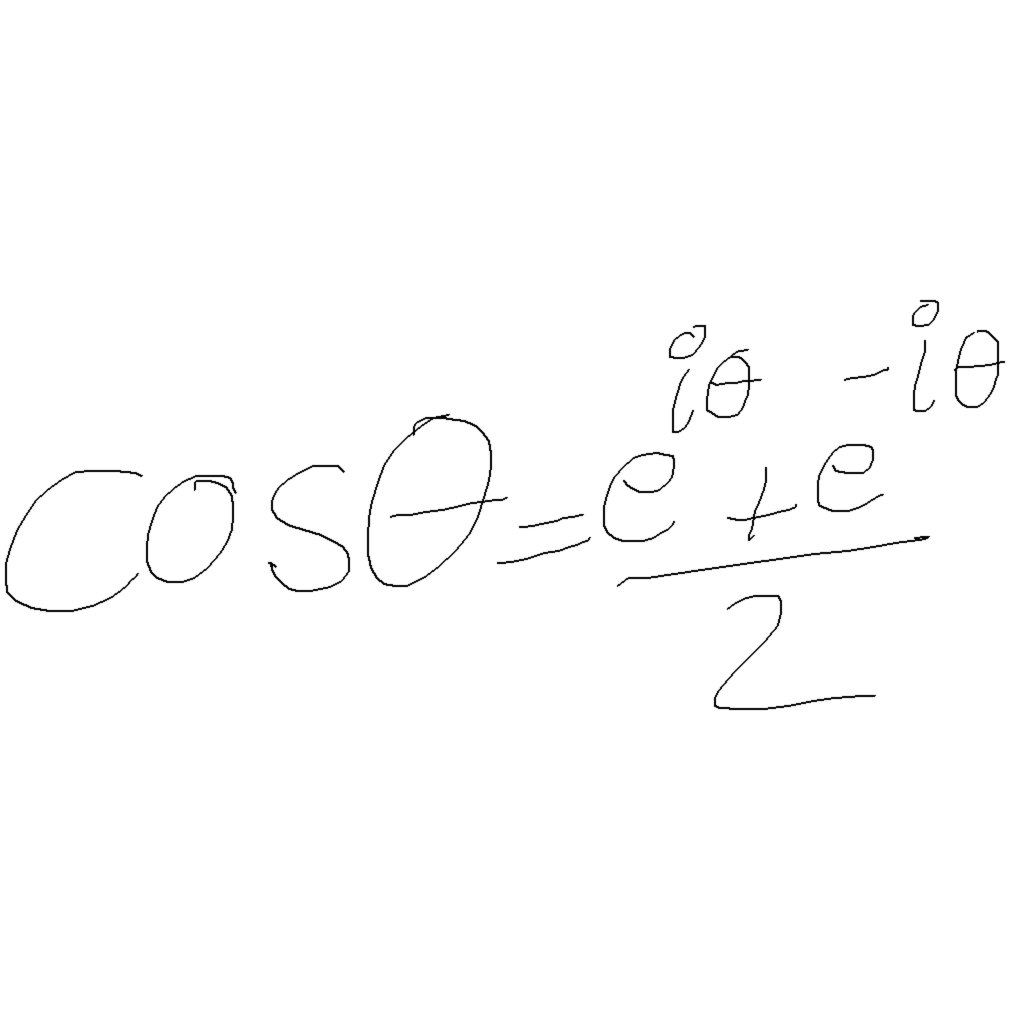 cosθ = (e^{iθ} + e^{-iθ})/2